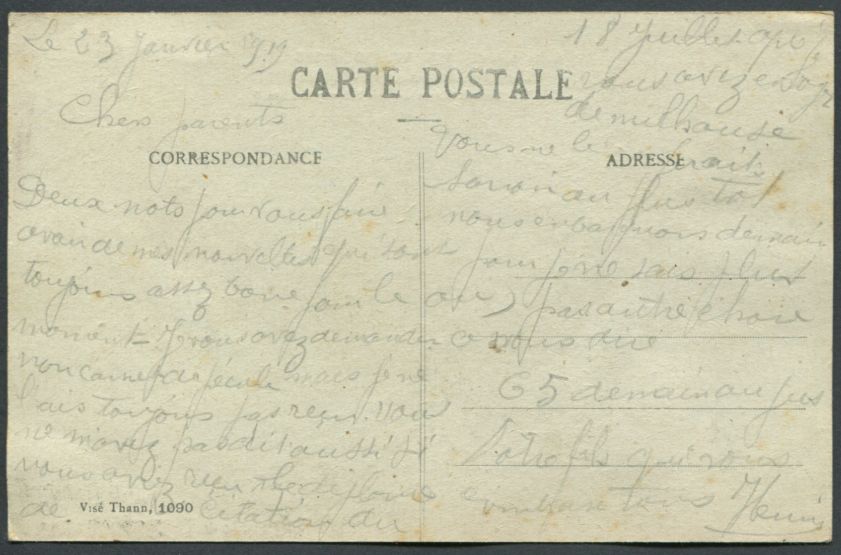 Le 23 Janvier 1919
CARTE POSTALE
Chers parents
CORRESPONDANCE
Deux mots pour vous faire
avoir de mes nouvelles qui sont
toujours assez bonne pour le
moment Je vous avez demander
mon carnet de pecule mais je ne
l'ais toujours pas reçu. vous
ne m'avez pas dit aussi si
vous aviez reçu le diplome
de Citation du
18 Juillet
vous avez
de mulhouse
ADRESSE
vous me le
savoir au plus tot
nous enbarquons demain
pour je ne sais plus
ou, pas autre chose
a vous dire
65 demain au jus
Votre fils qui vous
embrasse tous Henri
Visé Thann, 1090